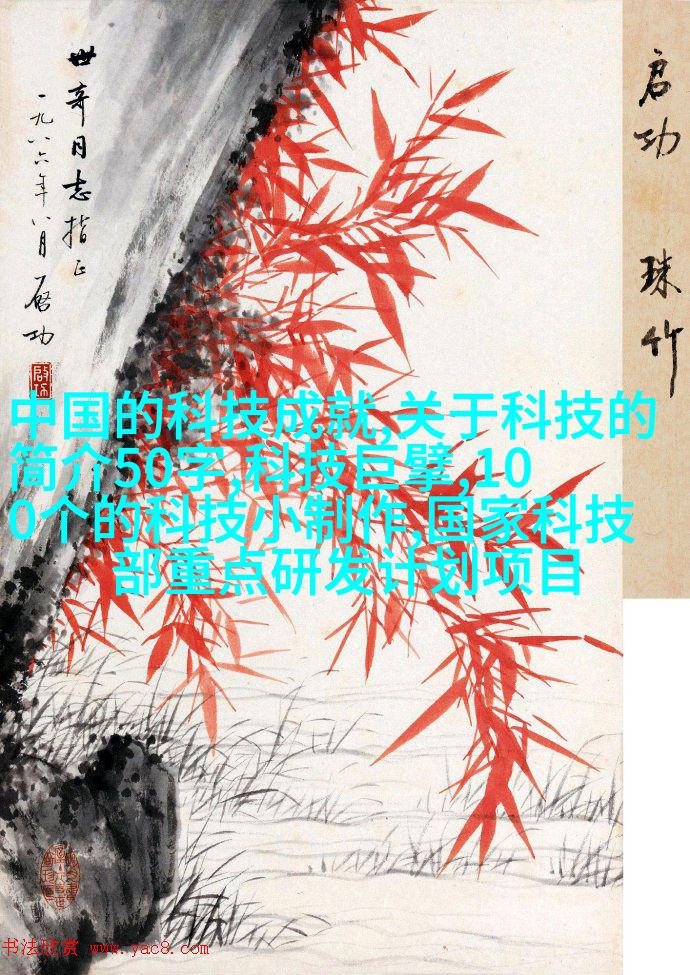 世奇同志指正
一九八六年八月 启功
启功
启功 珠竹
中国的科技成就,关于科技的
简介50字,科技巨擘,10
0个的科技小制作,国家科技
部重点研发计划项目
书法欣赏 www.yac8.com